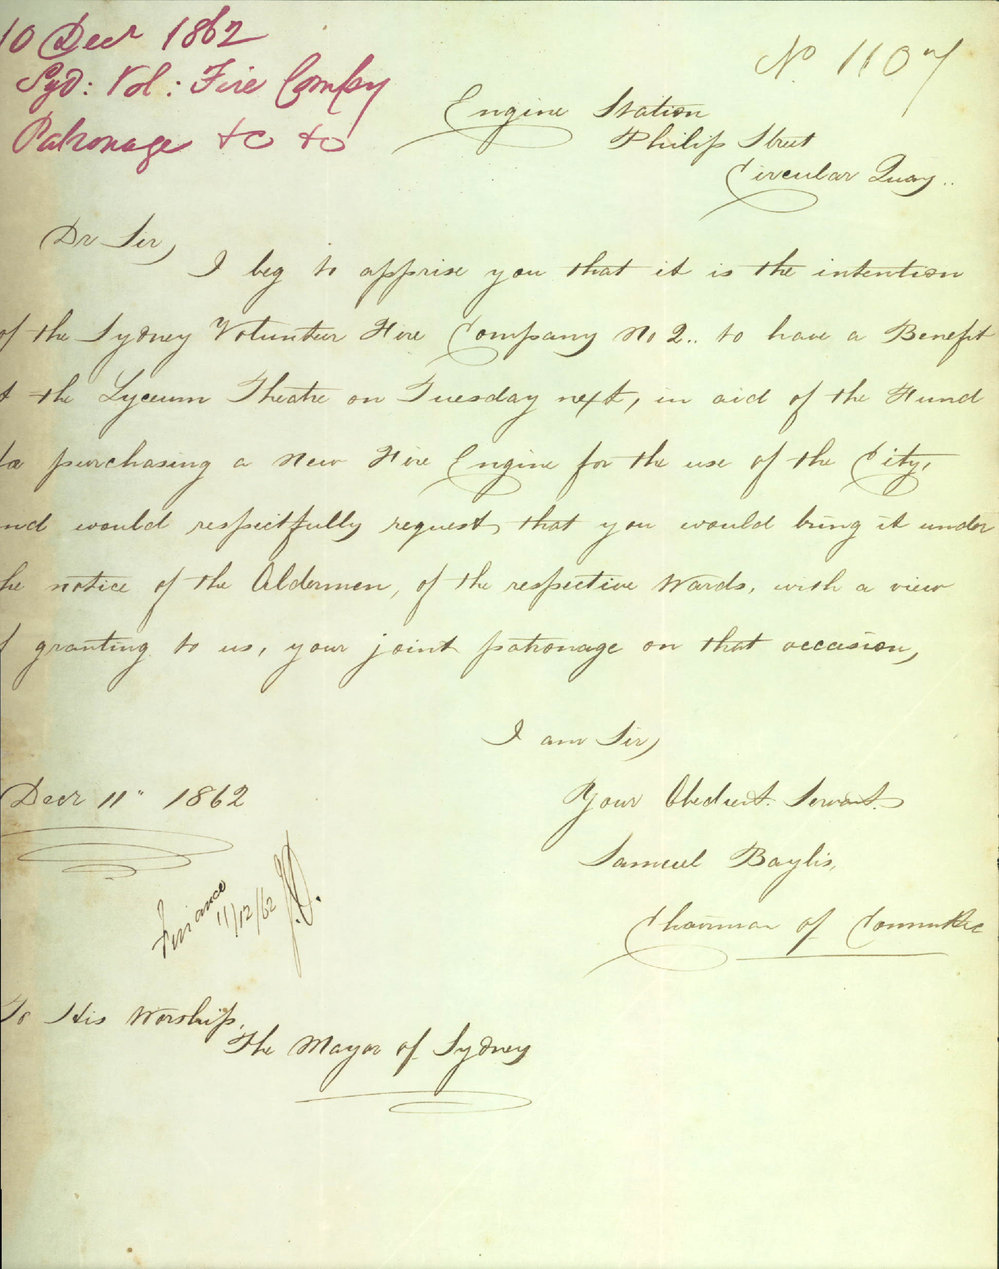 10 Decr 1862
Syd: Vol: Fire Compy
Patronage &c &c
No 1107
Engine Station
Philip Street
Circular Quay..
Dr Sir,
I beg to apprise you that it is the intention
of the Sydney Volunteer Fire Company No 2.. to have a Benefit
t the Lyceum Theatre on Tuesday next, in aid of the Fund
for purchasing a new Fire Engine for the use of the City,
nd would respectfully request, that you would bring it under
he notice of the Aldermen, of the respective Wards, with a view
f granting to us, your joint patronage on that occasion,
I am Sir,
Your Obedient Servant.
Samuel Baylis,
Chairman of Committee
Decr 11" 1862
Finance
11/12/62
To His Worship,
The Mayor of Sydney